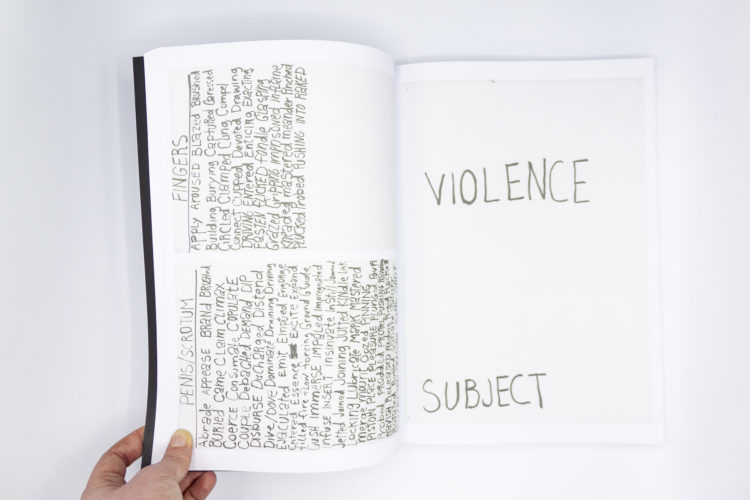 FINGERS
APPLY AROUSED BLAZED BRUSHED
Building Burying Captured Caressed
Circled Clamped Clung Compel
Connect Cupped Devoted Drawing
DRIVING Entered Enticing Exacting
FASTEN FUCKED Fondle GLASPING
Grazed Gripping imprisoned inflame
Kneaded mastered meander Pinched
PLUCKED Probed PUSHING INTO RAKED
PENIS/SCROTUM
Abrade APPEASE BRAND BRUSHED
BURIED Came CLaim CLimax
Coerce Consumate COPULATE
COUPLE Debauched Demand DIP
DISBURSE DISCHARGED Distend
Dive/Dove Dominate Draining Driving
EJACULATED Emit Emptied Engorge
Entered Essence Excite Expand
Filled Fire Flow Forcing Ground Guide
Gush IMMERSE IMPALED Impregnated
Infuse INSERT Insinuate
Jetted Joined Joining JUTTED Kindle Link
Locking Lubricate MARK MASTERED
PISTON PLACE PLEASURE
VIOLENCE
SUBJECT